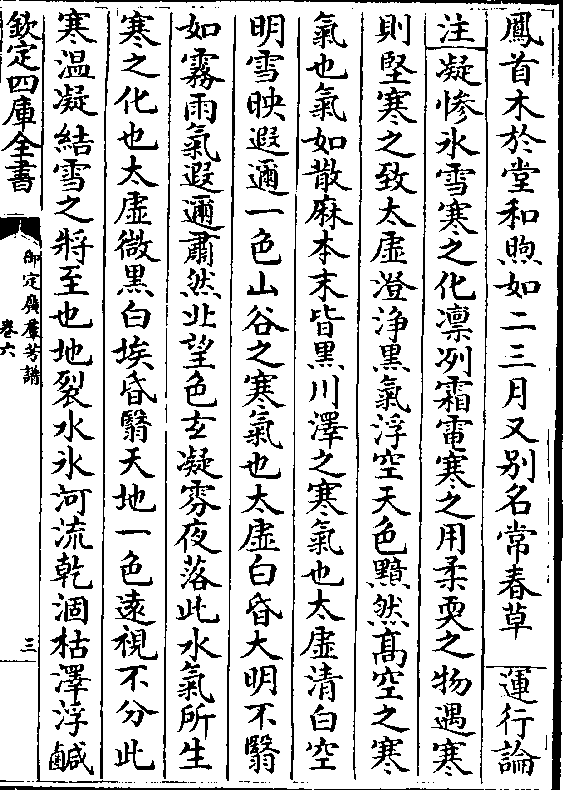 鳳首木於堂和煦如二三月又别名常春草　運行論
注凝惨氷雪寒之化凛冽霜雹寒之用柔耎之物遇寒
則堅寒之致太虚澄浄黒氣浮空天色黯然髙空之寒
氣也氣如散麻本末皆黒川澤之寒氣也太虚清白空
明雪映遐邇一色山谷之寒氣也太虚白昏大明不翳
如霧雨氣遐邇肅然北望色玄凝雰夜落此水氣所生
寒之化也太虚微黒白埃昏翳天地一色逺視不分此
寒温凝結雪之將至也地裂水氷河流乾涸枯澤浮鹹
欽定四庫全書
御定廣羣芳譜
卷六
三